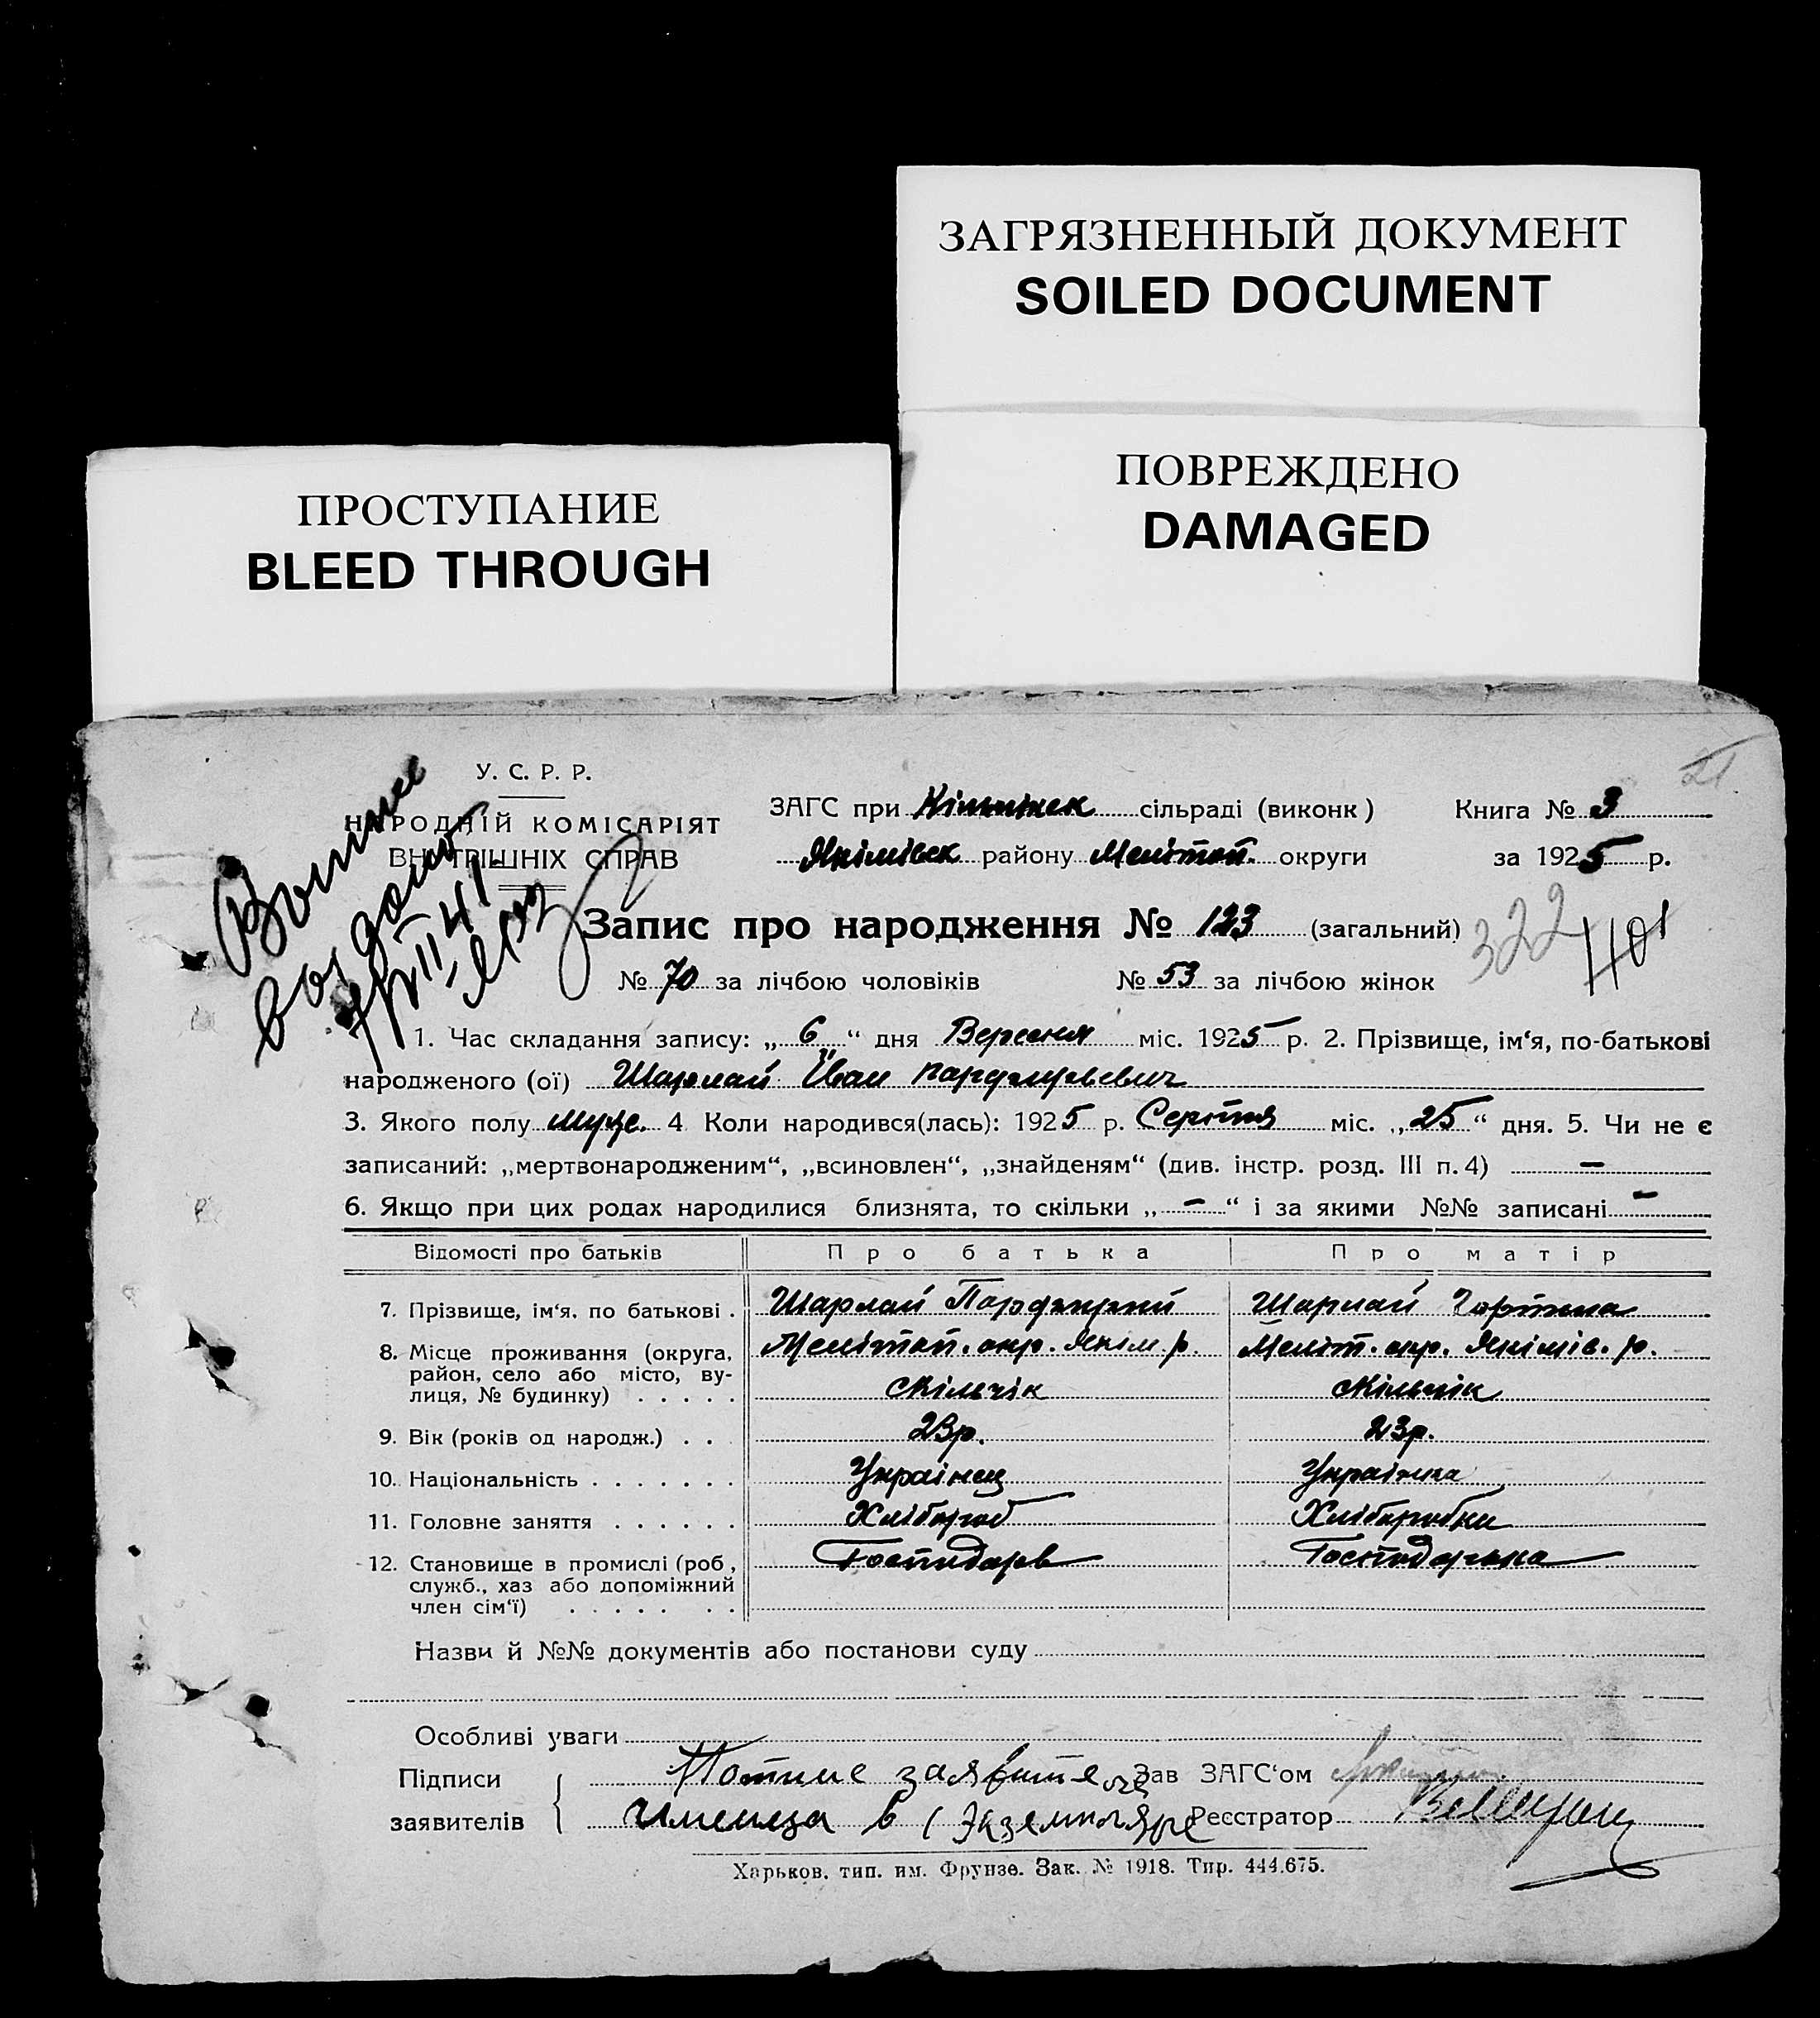 ЗАГРЯЗНЕННЫЙ ДОКУМЕНТ
SOILED DOCUMENT
ПОВРЕЖДЕНО
DAMAGED
ПРОСТУПАНИЕ
BLEED THROUGH
21
У. С. Р. Р.
НАРОДНІЙ КОМІСАРІЯТ
ВНУТРІШНІХ СПРАВ
ЗАГС при сільраді (виконк) Книга № 3
Якімівск району Мелітоп. округи за 1925 р.
Запис про народження № 123 (загальний)
322 401
№ 70 за лічбою чоловіків № 53 за лічбою жінок
1. Час складання запису: „ 6 “ дня Вересня міс. 1925 р. 2. Прізвище, ім‘я, по-батькові
народженого (ої) Шарлай Іван
3. Якого полу муж. 4 Коли народився(лась): 1925 р. Серпня міс. „ 25 “ дня. 5. Чи не є
записаний: „мертвонародженим“, „всиновлен“, „знайденям“ (див. інстр. розд. III п. 4) —
6. Якщо при цих родах народилися близнята, то скільки „ — “ і за якими №№ записані —
Відомості про батьків Про батька Про матір
7. Прізвище, ім‘я, по батькові . Шарлай Шарлай
8. Місце проживання (округа, Мелітоп. окр. Якім. р. Меліт. окр. Якімів. р.
район, село або місто, ву-
лиця, № будинку) . . . . . Кільчік Кільчік
9. Вік (років од народж.) . . . 23 р. 23 р.
10. Національність . . . . . . . Українец Українка
11. Головне заняття . . . . . . Хлібороб Хліборобка
12. Становище в промислі (роб, Господарь Господарька
служб., хаз або допоміжний
член сім‘ї) . . . . . . .
Назви й №№ документів або постанови суду
Особливі уваги
Підписи заявите Зав ЗАГС‘ом
заявителів имеица в 1 Экземпляре Реєстратор
Харьков. тип. им. Фрунзе. Зак. № 1918. Тир. 444.675.